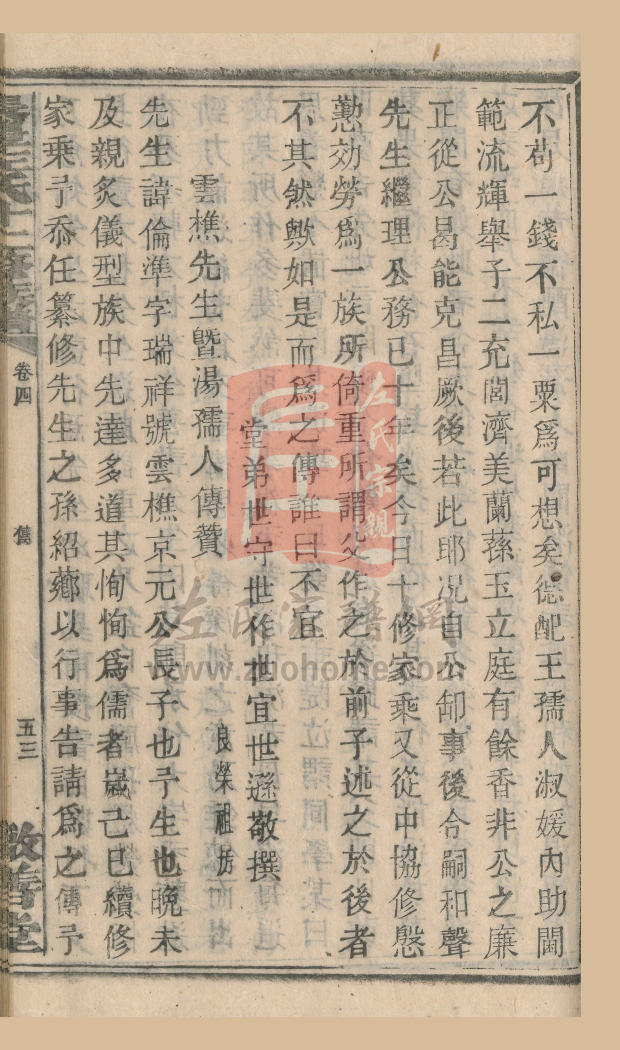 不苟一錢不私一粟爲可想矣德配王孺人淑媛內助閫
範流輝舉子二充閭濟美蘭蓀玉立庭有餘香非公之廉
正從公曷能克昌厥後若此耶况自公卸事後令嗣和聲
先生繼理公務已十年矣今日十修家乘又從中協修慇
懃効勞爲一族所倚重所謂父作之於前子述之於後者
不其然歟如是而爲之傳誰曰不宜
堂弟世守世作世宜世遜敬撰
雲樵先生暨湯孺人傳贊
良榮祖房
先生諱倫準字瑞祥號雲樵京元公長子也予生也晚未
及親炙儀型族中先達多道其恂恂爲儒者歲己巳續修
家乘予忝任纂修先生之孫紹薌以行事告請爲之傳予
左氏十二修族譜
卷四
五三
敬善堂
左氏宗親
www.zuohome.com